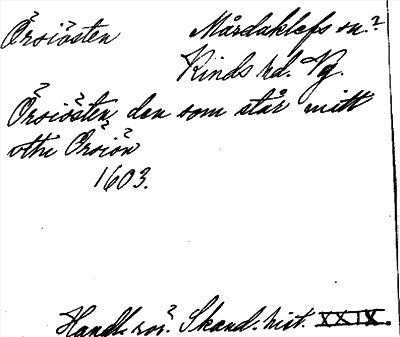 Örsiösten Mårdaklefs sn.?
Kinds hd. Vg.
Örsiösten, den som står mitt
uthi Örsiön
1603.
Handl. rör. Skand. hist. XXIX.